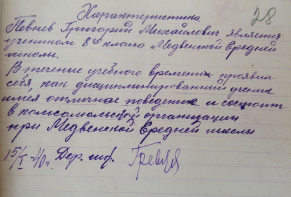 28
Характеристика
Певнев Григорий Михайлович является
учеником 8го класса Медвенской средней
школы.
В течение учебного времени проявил
себя, как дисциплинированный ученик
имея отличное поведение и состоит
в комсомольской организации
при Медвенской средней школы
15/I-40г.